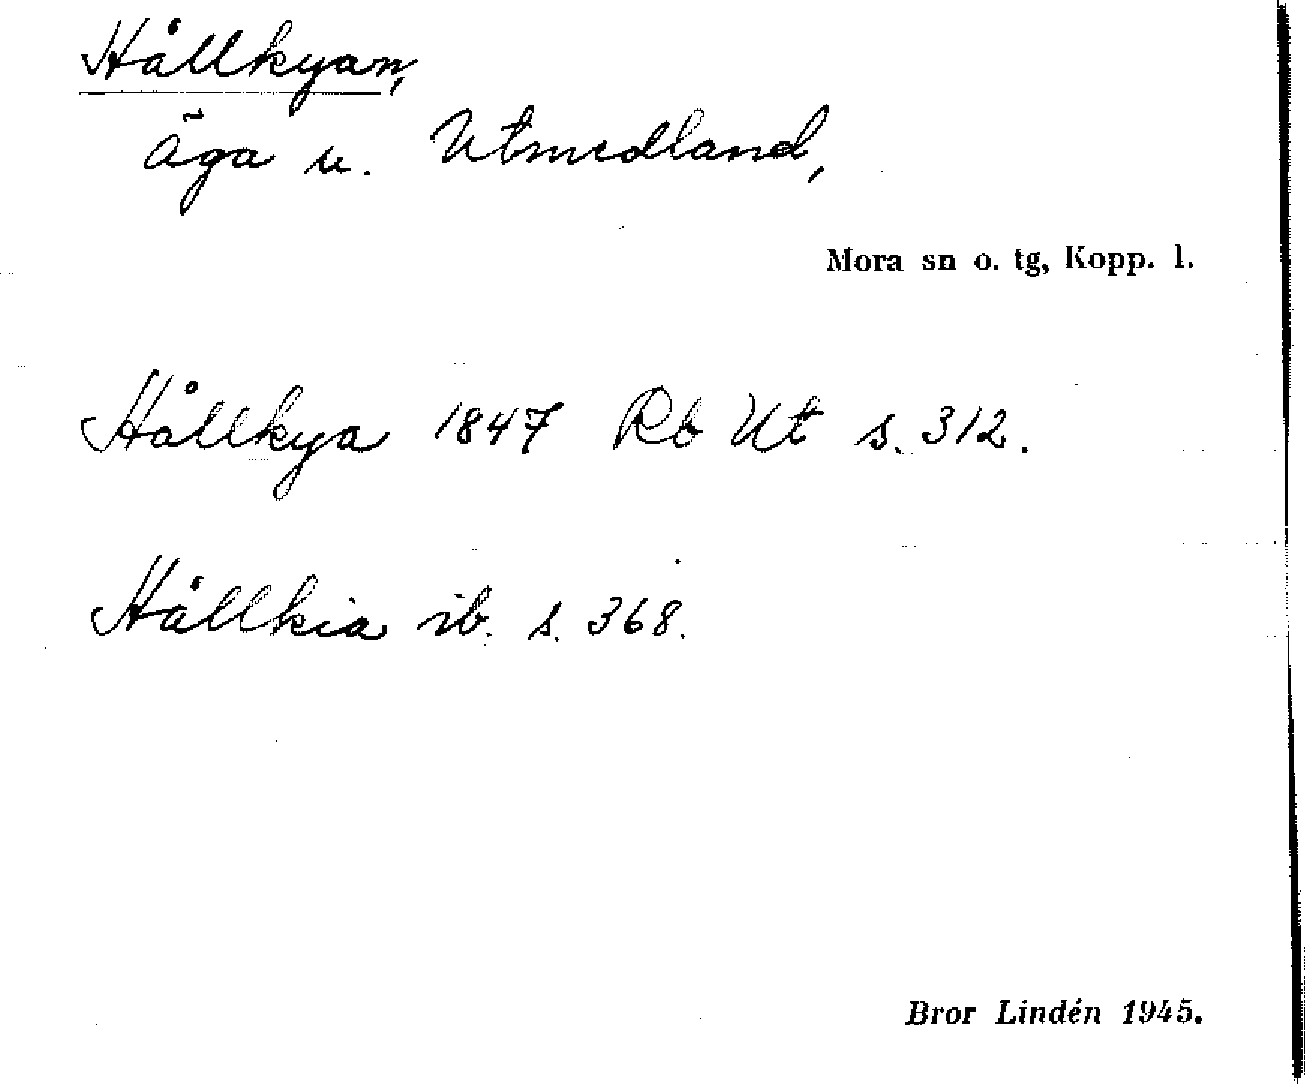 Hållkyan,
Äga u. Utmedland,
Mora sn o. tg, Kopp. l.
Hållkya 1847 Rb Ut s. 312.
Hållkia ib. s. 368.
Bror Lindén 1945.